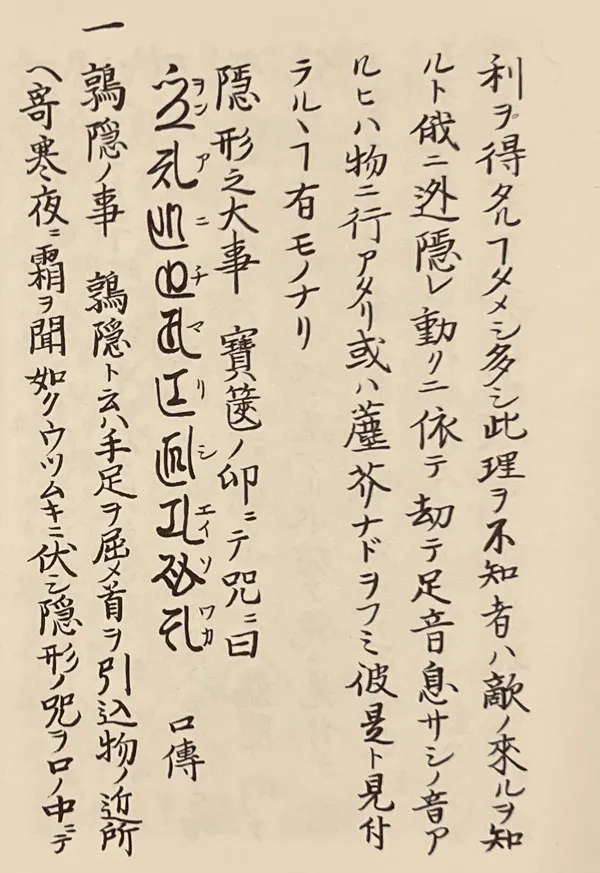 利ヲ得タルヿタメシ多シ此理ヲ不知者ハ敵ノ來ルヲ知
ルト俄ニ迯隠レ動クニ依テ却テ足音息サシノ音ア
ルヒハ物ニ行アタリ或ハ塵芥ナドヲフミ彼是ト見付
ラルヽヿ有モノナリ
隠形之大事 寳篋ノ印ニテ咒ニ曰
ヲンアニチマリシエイソワカ 口傳
一 鶉隠ノ事 鶉隠ト云ハ手足ヲ屈メ首ヲ引込物ノ近所
ヘ寄寒夜ニ霜ヲ聞如クウツムキニ伏シ隠形ノ咒ヲ口ノ中ニテ